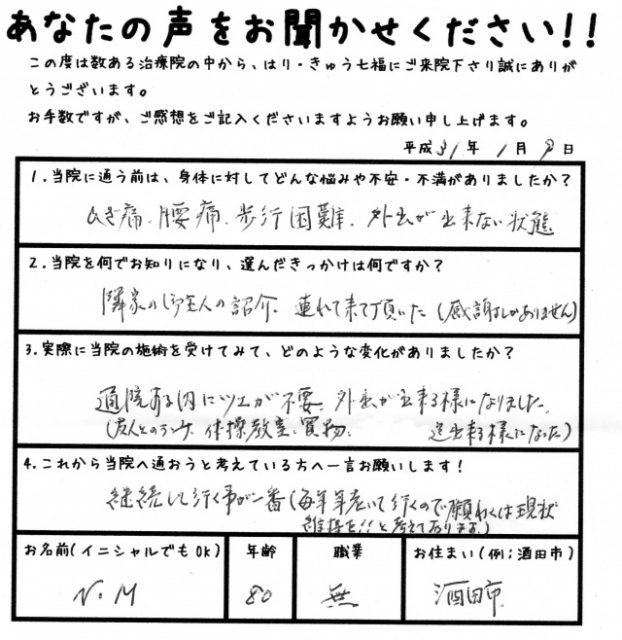 あなたの声をお聞かせください!!
この度は数ある治療院の中から、はり・きゅう七福にご来院下さり誠にありが
とうございます。
お手数ですが、ご感想をご記入くださいますようお願い申し上げます。
平成31年 1月 9日
1.当院に通う前は、身体に対してどんな悩みや不安・不満がありましたか?
ひざ痛、腰痛、歩行困難、外出が出来ない状態
2.当院を何でお知りになり、選んだきっかけは何ですか?
隣家の御主人の紹介、連れて来て頂いた(感謝しかありません)
3.実際に当院の施術を受けてみて、どのような変化がありましたか?
通院する内にツエが不要、外出が出来る様になりました。
(友人とのランチ、体操教室、買物、 迄出来る様になった)
4.これから当院へ通おうと考えている方へ一言お願いします!
継続して行く事が一番(毎年年老いて行くので願わくは現状
維持を!!と考えております。)
お名前(イニシャルでもOK) 年齢 職業 お住まい(例;酒田市)
N・M 80 無 酒田市